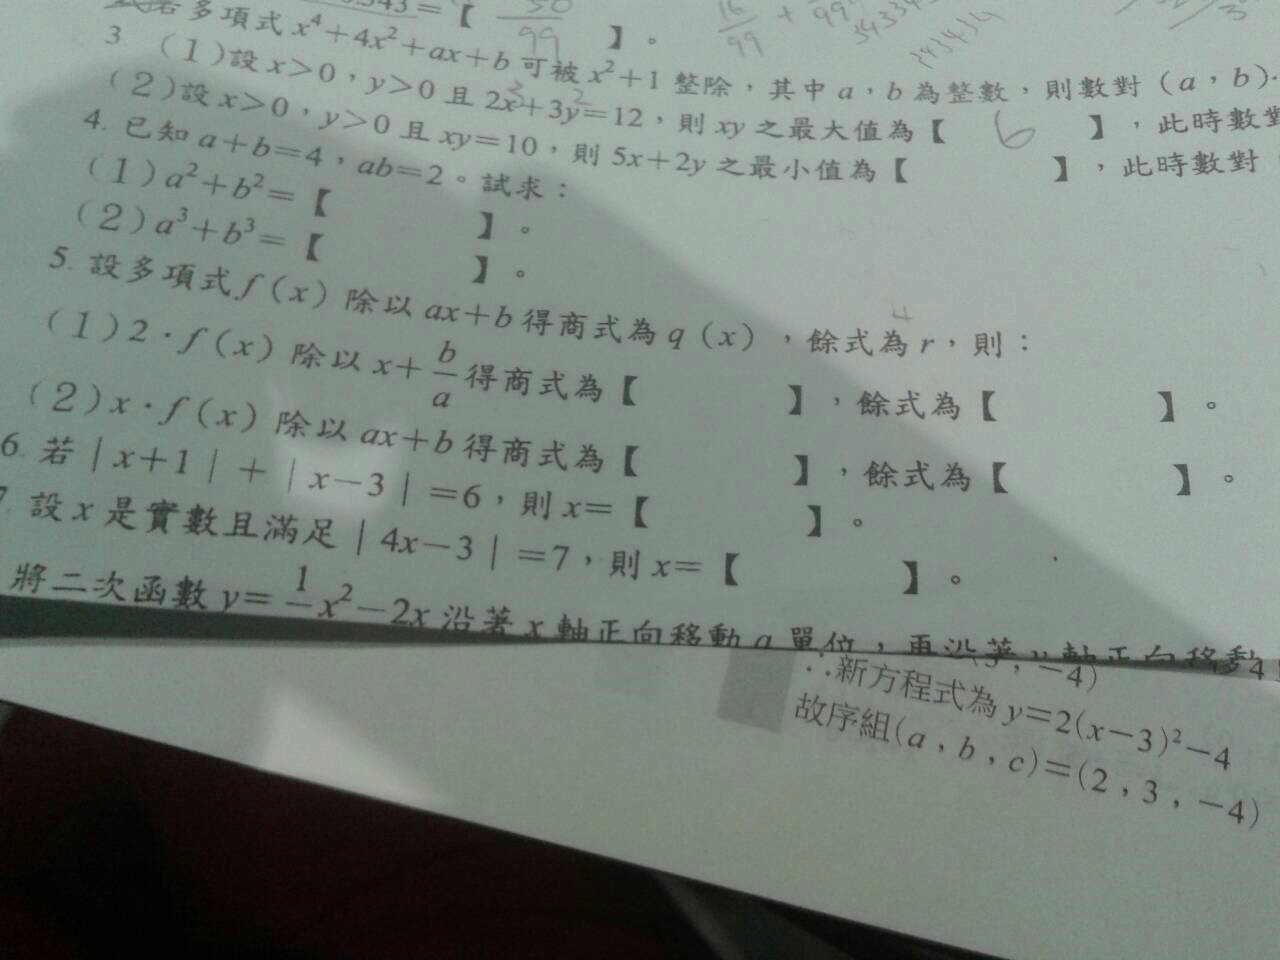 343=【 50/99 】。
若多項式 x⁴+4x²+ax+b 可被 x²+1 整除,其中 a,b 為整數,則數對(a,b)
3. (1)設 x>0,y>0 且 2x+3y=12,則 xy 之最大值為【 6 】,此時數對
(2)設 x>0,y>0 且 xy=10,則 5x+2y 之最小值為【 】,此時數對
4. 已知 a+b=4,ab=2。試求:
(1)a²+b²=【 】。
(2)a³+b³=【 】。
5. 設多項式 f(x)除以 ax+b 得商式為 q(x),餘式為 r,則:
(1)2·f(x)除以 x+b/a 得商式為【 】,餘式為【 】。
(2)x·f(x)除以 ax+b 得商式為【 】,餘式為【 】。
6. 若 |x+1|+|x-3|=6,則 x=【 】。
7. 設 x 是實數且滿足 |4x-3|=7,則 x=【 】。
將二次函數 y= x²-2x 沿著 x 軸正向移動 a 單位,再沿著 y 軸正向移動
(3,-4)
∴新方程式為 y=2(x-3)²-4
故序組(a,b,c)=(2,3,-4)